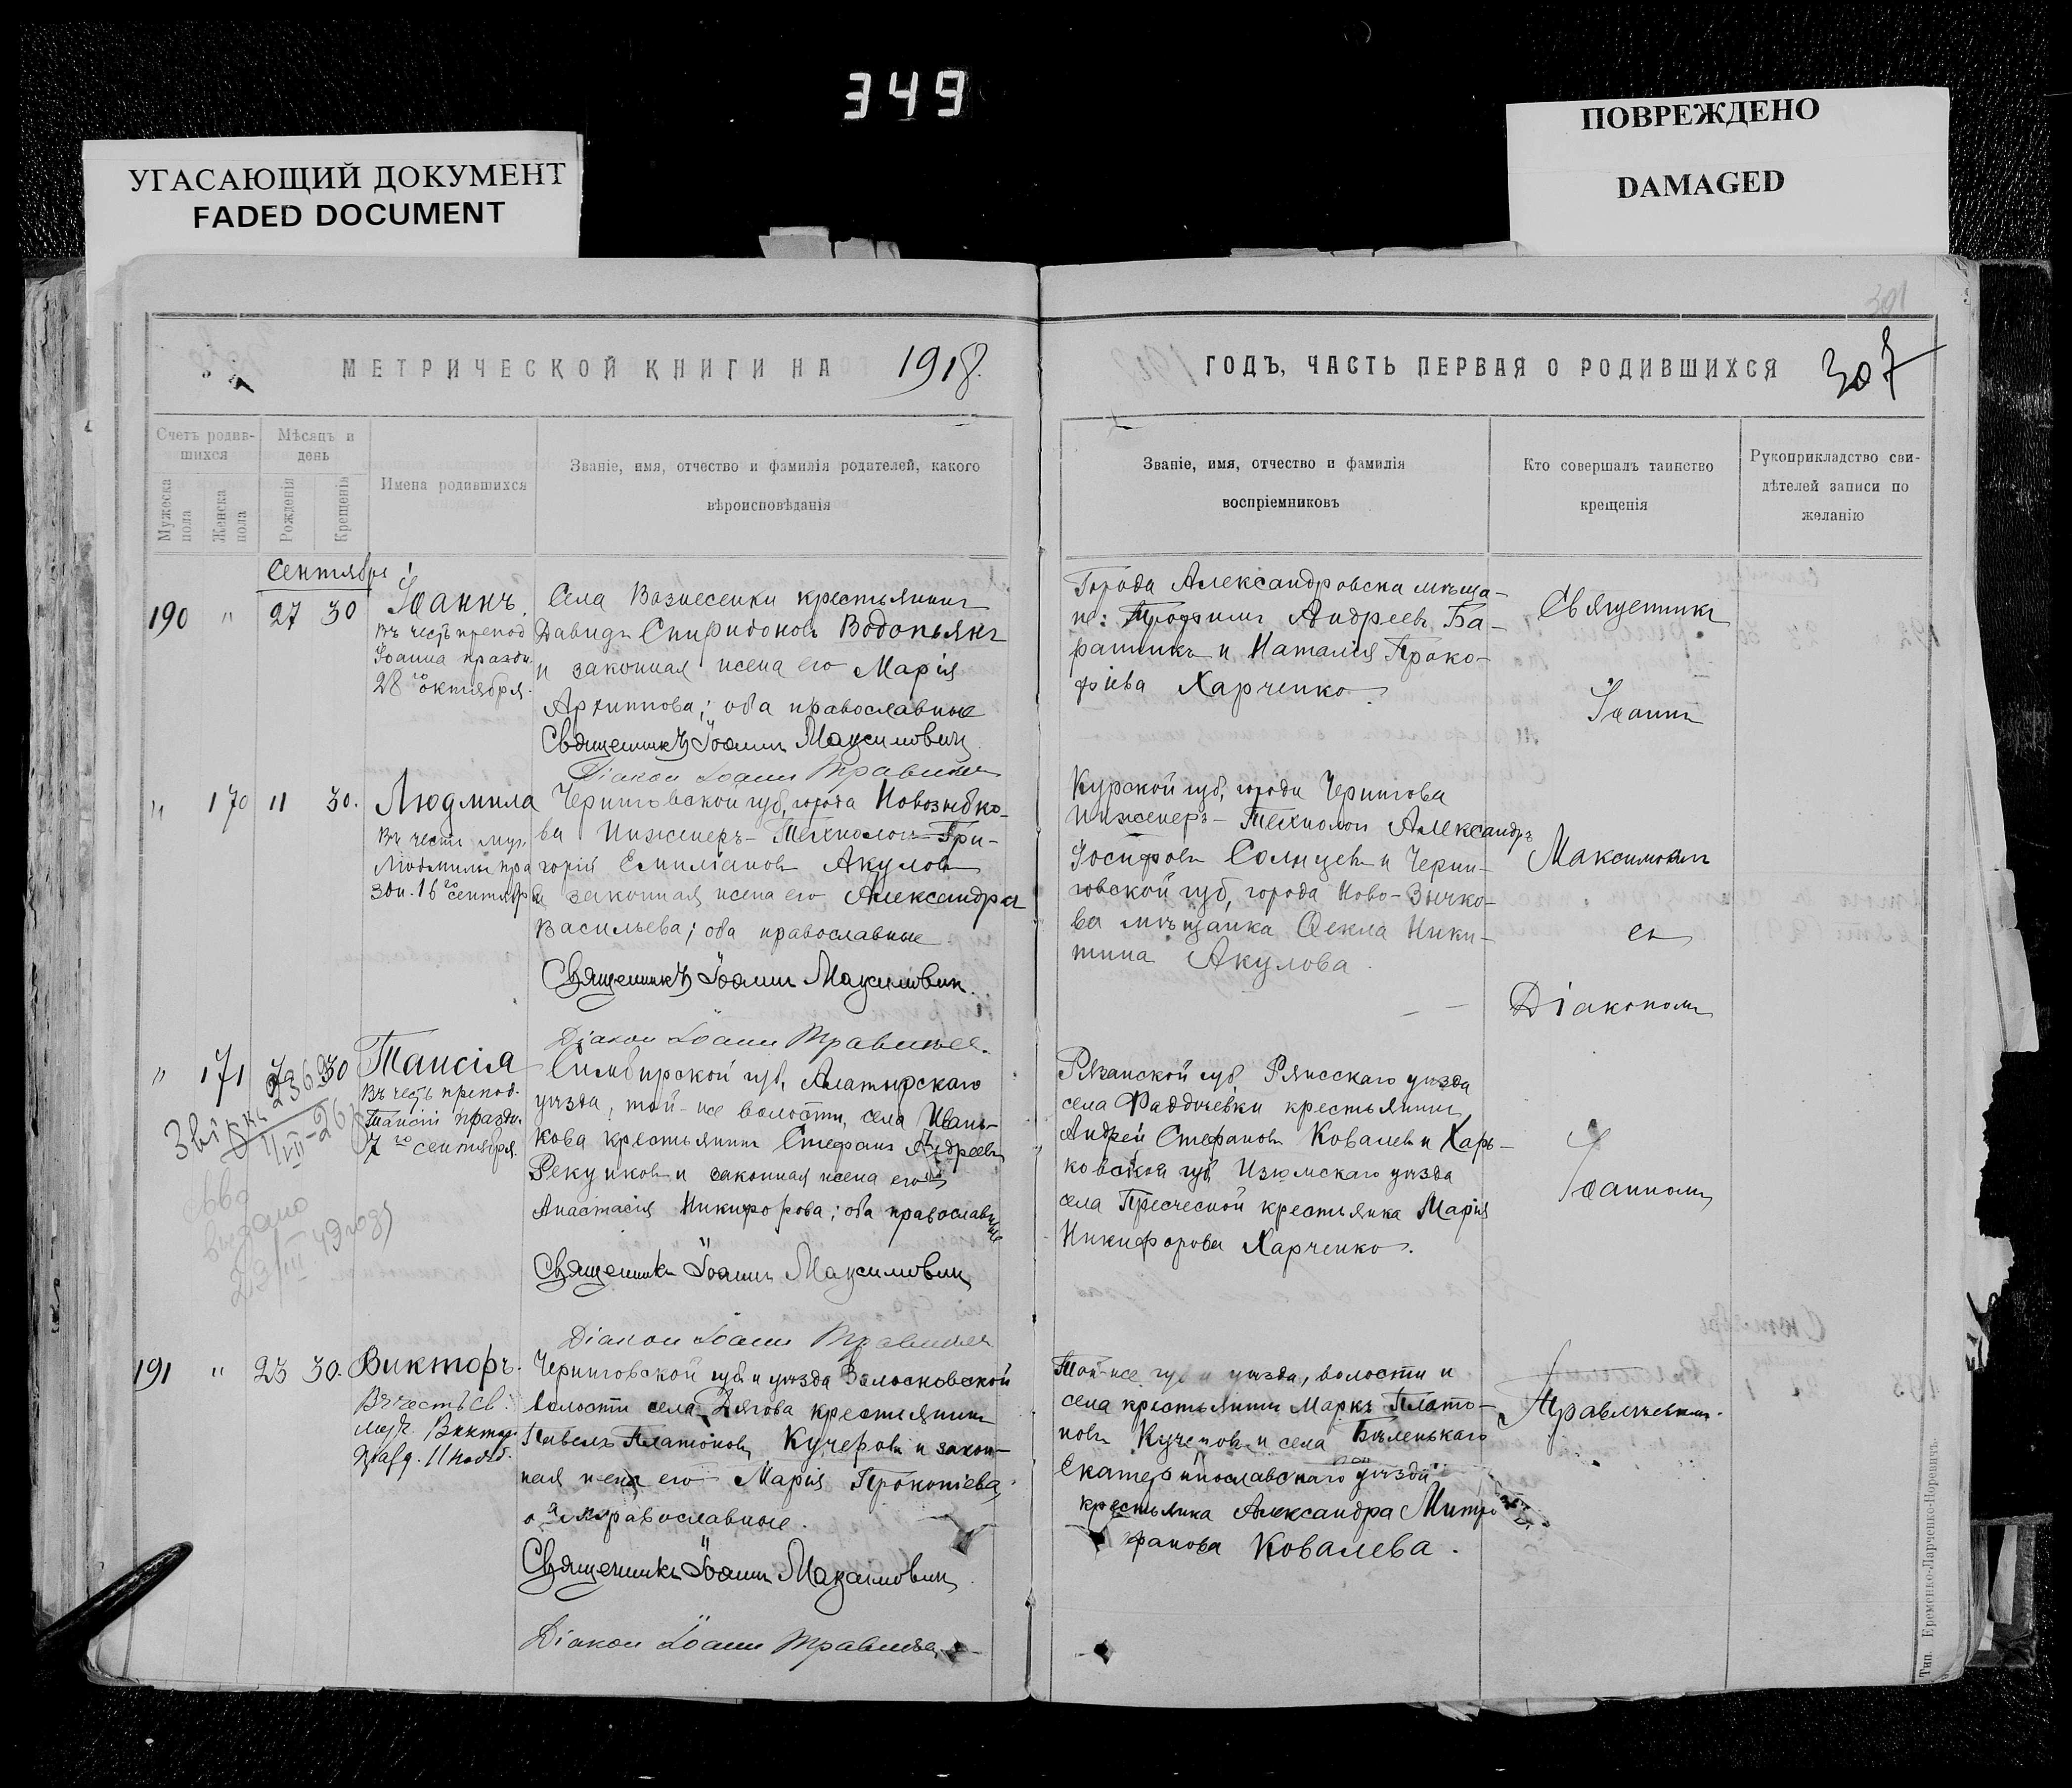 349
УГАСАЮЩИЙ ДОКУМЕНТ
FADED DOCUMENT
ПОВРЕЖДЕНО
DAMAGED
301
МЕТРИЧЕСКОЙ КНИГИ НА 1918.
ГОДЪ, ЧАСТЬ ПЕРВАЯ О РОДИВШИХСЯ 307
Счетъ родив-
шихся
Мужеска пола
Женска пола
Мѣсяцъ и
день
Рожденія
Крещенія
Имена родившихся
Званіе, имя, отчество и фамилія родителей, какого
вѣроисповѣданія
Званіе, имя, отчество и фамилія
воспріемниковъ
Кто совершалъ таинство
крещенія
Рукоприкладство сви-
дѣтелей записи по
желанію
Сентябрь
190 " 27 30
Іоаннъ.
Въ честь препод.
Іоанна праздн.
28го октября.
Села Вознесенки крестьянинъ
Давидъ Спиридоновъ Водопьянъ
и законная жена его Марія
Архиппова; оба православные
Священникъ Іоаннъ Максимовичъ
Діаконъ Іоаннъ
Города Александровска мѣща-
не: Андреевъ Ба-
и Наталія Проко-
фіева Харченко
" 170 11 30.
Людмила
Въ честь муч.
Людмилы пра
здн. 16го сентября
Черниговской губ, города Новозыбко-
ва Инженеръ-Технологъ Гри-
горій Емиліановъ Акуловъ
и законная жена его Александра
Васильева; оба православные
Священникъ Іоаннъ Максимовичъ.
Діаконъ Іоаннъ
Курской губ, города Чернигова
Инженеръ-Технологъ Александръ
Іосифовъ Солнцевъ и Черни-
говской губ, города Ново-Зыбко-
ва мѣщанка Ѳекла Ники-
тина Акулова.
" 171 7 30
Таисія
Въ честь препод.
Таисіи праздн.
7го сентября.
Симбирской губ, Алатырскаго
уѣзда, той-же волости, села Ивань-
кова крестьянинъ Стефанъ Андреевъ
и законная жена его
Анастасія Никифорова; оба православные
Священникъ Іоаннъ Максимовичъ
Діаконъ Іоаннъ
Рязанской губ, Ряжскаго уѣзда
села крестьянинъ
Андрей Стефановъ Ковалевъ и Харь-
ковской губ, Изюмскаго уѣзда
села крестьянка Марія
Никифорова Харченко.
29/III 49 года
191 " 23 30.
Викторъ.
Въ честь св.
муч. Виктора
празд. 11 нояб.
Черниговской губ. и уѣзда
волости села крестьянинъ
Павелъ Платоновъ Кучеровъ и закон-
ная жена его Марія Прокопіева,
оба православные.
Священникъ Іоаннъ Максимовичъ
Діаконъ Іоаннъ
Той-же губ и уѣзда, волости и
села крестьянинъ Маркъ Плато-
новъ Кучеровъ и села Бѣленькаго
Екатеринославскаго уѣзда
крестьянка Александра Митро
фанова Ковалева.
Священникъ
Іоаннъ
Максимовичъ
съ
Діакономъ
Іоанномъ
Тип. Еременко-Ларченко-Норевичъ.